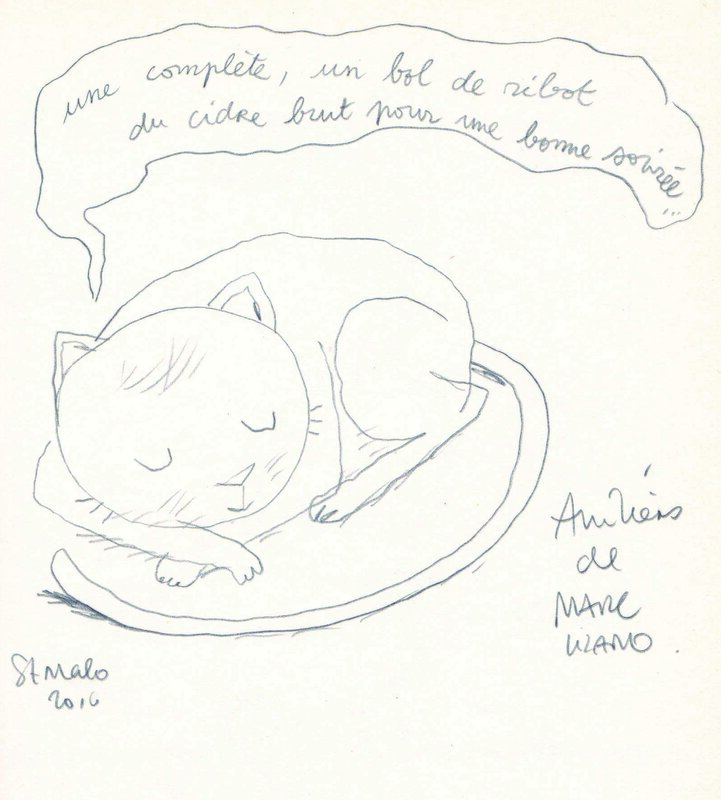 une complète, un bol de ribot
du cidre brut pour une bonne soirée...
Amitiés
de
MARC
LIZANO.
St Malo
2016